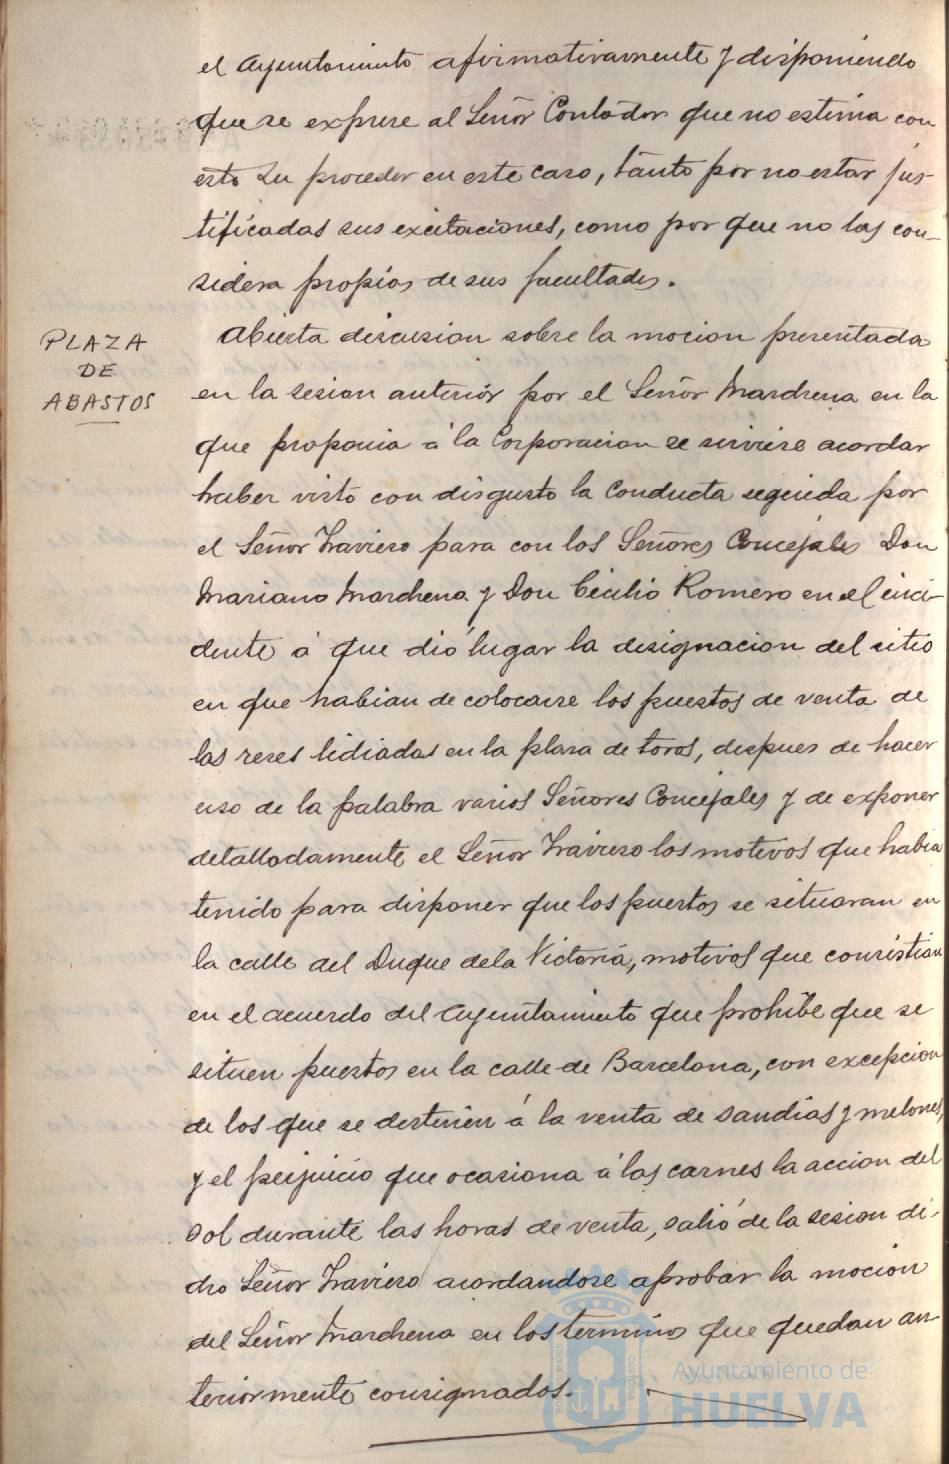 el Ayuntamiento afirmativamente y disponiendo
que se exprese al Señor Contador que no estima con
esto su proceder en este caso, tanto por no estar jus-
tificadas sus excitaciones, como por que no las con-
sidera propias de sus facultades.
PLAZA
DE
ABASTOS
Abierta discusion sobre la mocion presentada
en la sesion anterior por el Señor Marchena en la
que proponia á la Corporacion se sirviese acordar
haber visto con disgusto la conducta seguida por
el Señor Travieso para con los Señores Concejales Don
Mariano Marchena y Don Cecilio Romero en el inci-
dente á que dió lugar la designacion del sitio
en que habian de colocarse los puestos de venta de
las reses lidiadas en la plaza de toros, despues de hacer
uso de la palabra varios Señores Concejales y de exponer
detalladamente el Señor Travieso los motivos que habia
tenido para disponer que los puestos se situaran en
la calle del Duque de la Victoria, motivos que consistian
en el acuerdo del Ayuntamiento que prohibe que se
situen puestos en la calle de Barcelona, con excepcion
de los que se destinen á la venta de sandias y melones,
y el perjuicio que ocasiona á las carnes la accion del
sol durante las horas de venta, salió de la sesion di-
cho Señor Travieso acordandose aprobar la mocion
del Señor Marchena en los terminos que quedan an-
teriormente consignados.
Ayuntamiento de
HUELVA